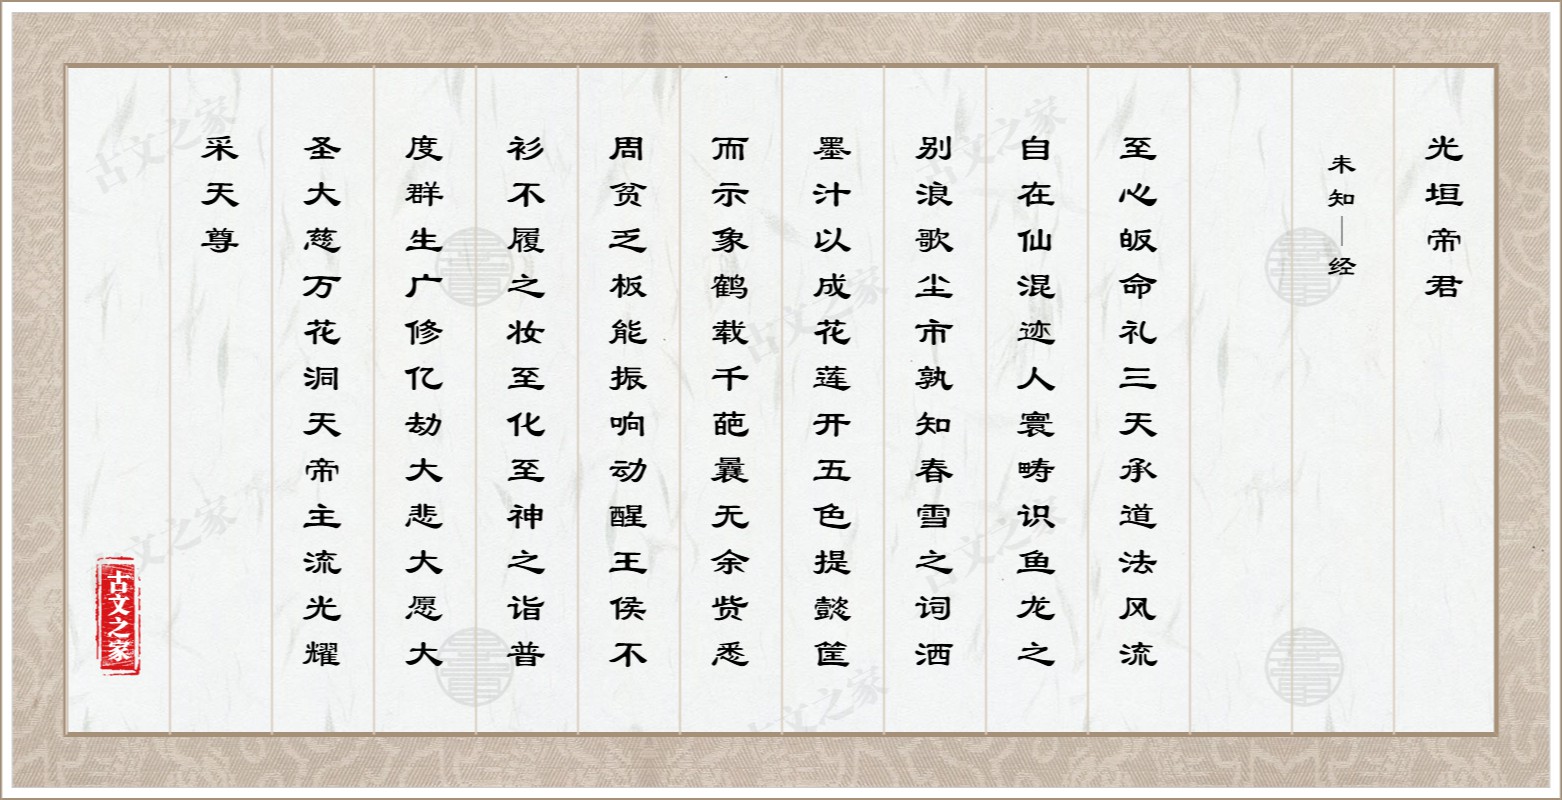 光垣帝君
未知—经
至心皈命礼三天承道法风流
自在仙混迹人寰畴识鱼龙之
别浪歌尘市孰知春雪之词洒
墨汁以成花莲开五色提懿筐
而示象鹤载千葩曩无余赀悉
周贫乏板能振响动醒王侯不
衫不履之妆至化至神之诣普
度群生广修亿劫大悲大愿大
圣大慈万花洞天帝主流光耀
采天尊
古文之家